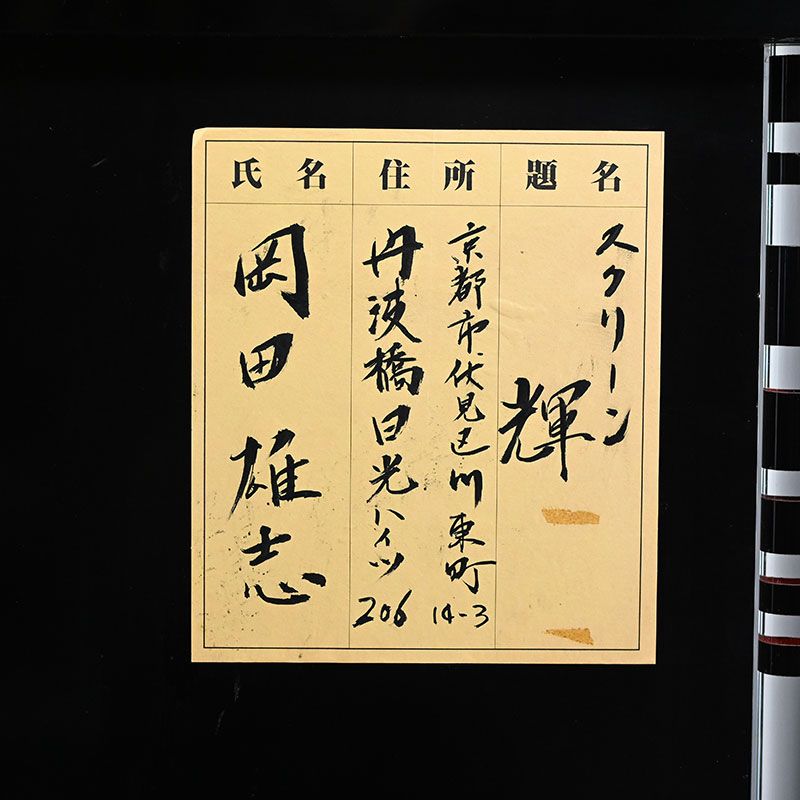 題名
スクリーン
輝
住所
京都市伏見区川東町14-3
丹波橋日光ハイツ206
氏名
岡田雄志